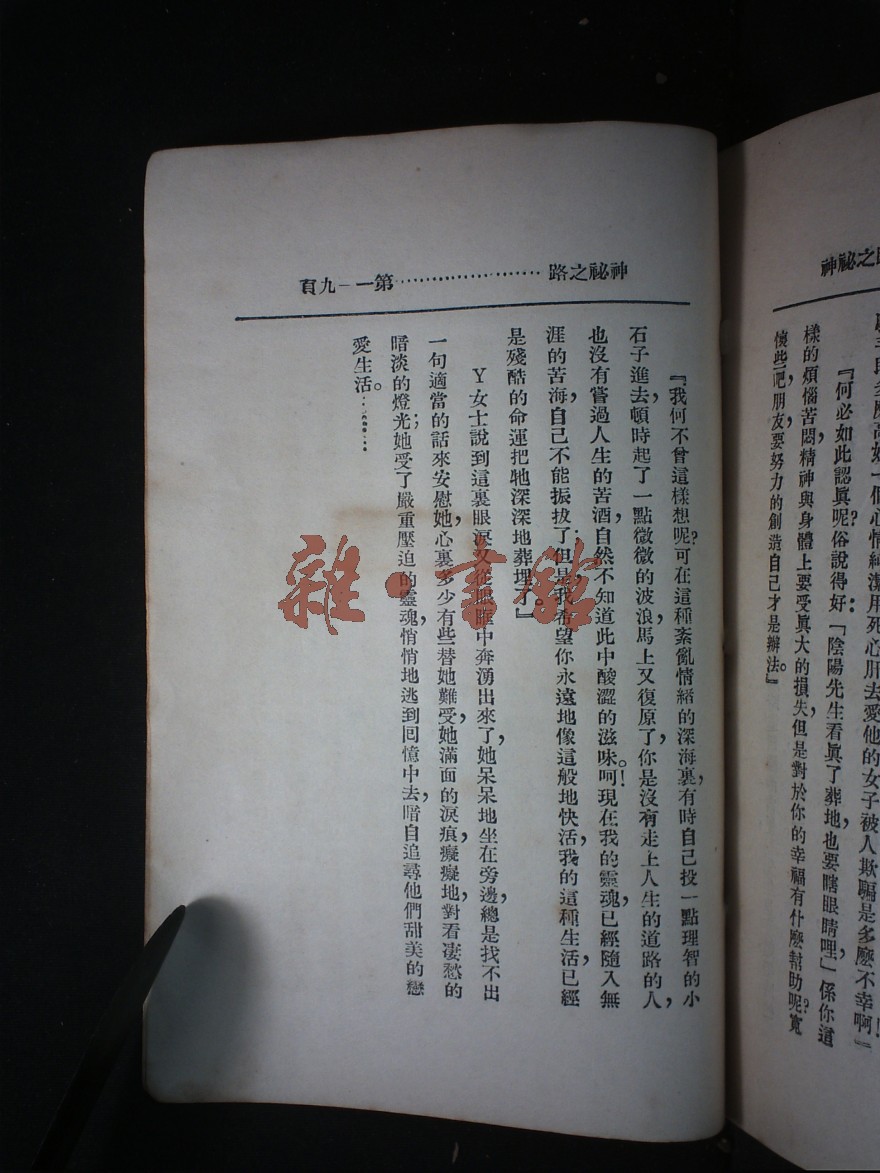 神祕之
一個心情純潔用死心肝去愛他的女子被人欺騙是多麼不幸啊！』
『何必如此認眞呢？俗說得好：「陰陽先生看眞了葬地，也要瞎眼睛哩，」係你這
樣的煩惱苦悶，精神與身體上要受眞大的損失，但是對於你的幸福有什麼幫助呢？寬
懷些吧，朋友，要努力的創造自己才是辦法。』
神祕之路……………………第一一九頁
『我何不曾這樣想呢？可在這種紊亂情緒的深海裏，有時自己投一點理智的小
石子進去，頓時起了一點微微的波浪，馬上又復原了，你是沒有走上人生的道路的人，
也沒有嘗過人生的苦酒，自然不知道此中酸澀的滋味。呵！現在我的靈魂，已經隨入無
涯的苦海，自己不能振拔了；但是，我希望你永遠地像這般地快活，我的這種生活已經
是殘酷的命運把牠深深地葬埋了。』
Y女士說到這裏，眼淚又從眼睚中奔湧出來了，她呆呆地坐在旁邊，總是找不出
一句適當的話來安慰她，心裏多少有些替她難受，她滿面的淚痕，癡癡地，對看淒愁的
暗淡的燈光；她受了嚴重壓迫的靈魂，悄悄地逃到回憶中去，暗自追尋他們甜美的戀
愛生活。……
雜·書館